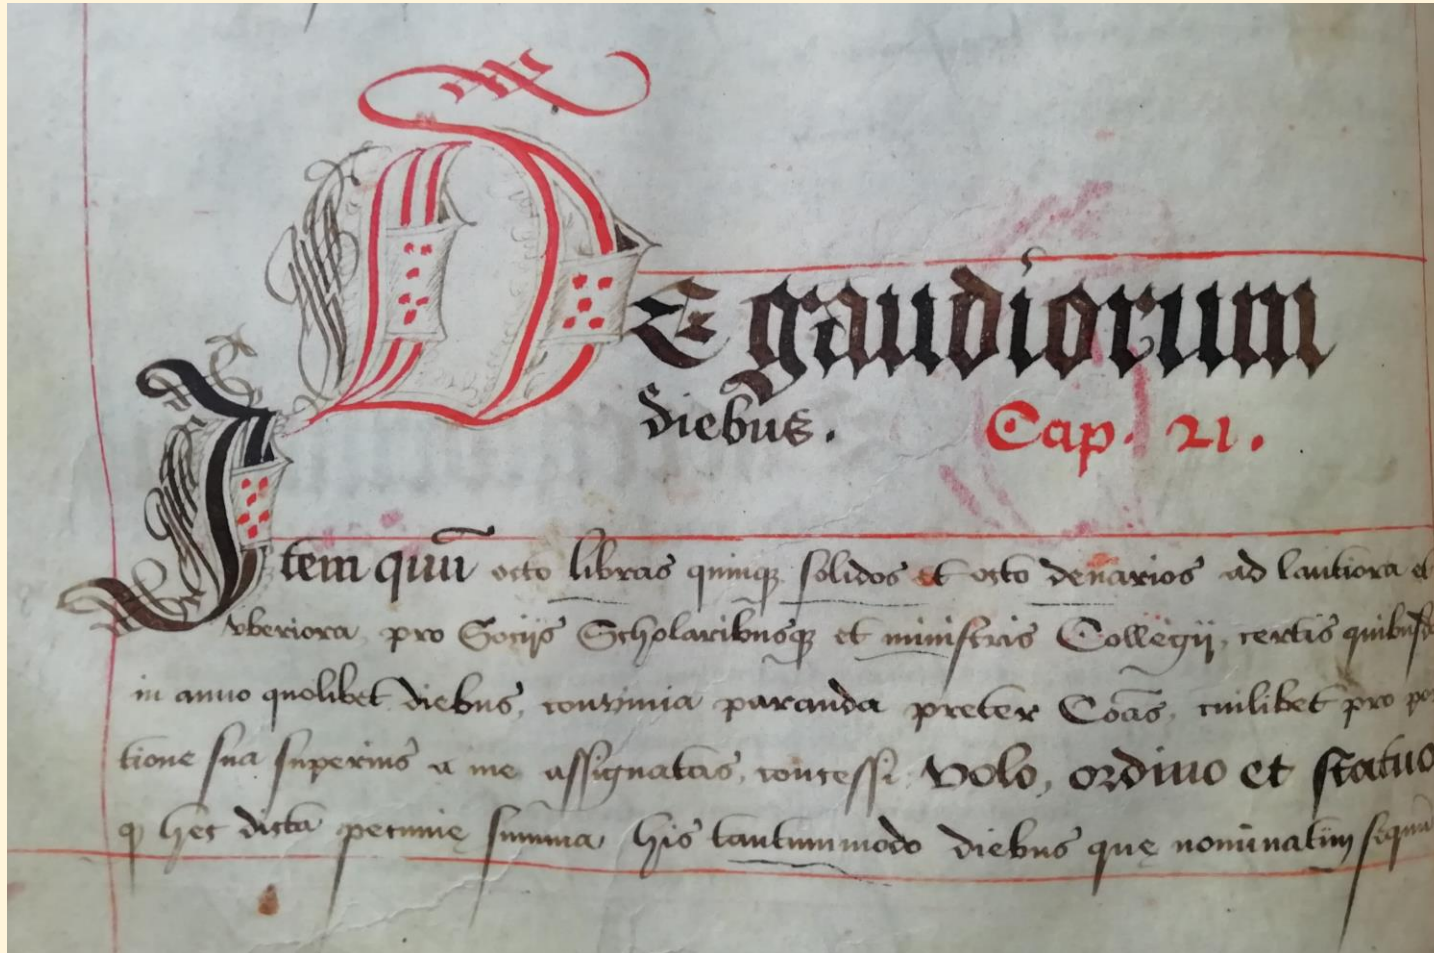 De gaudiorum
diebus. Cap. 21.
Item quū octo libras quinqȝ solidos et octo denarios ad lautiora et
vberiora, pro Socijs Scholaribusqȝ et ministris Collegij, certis quibusdā
in anno quolibet diebus, conuiuia paranda preter Coās, cuilibet pro por
tione sua superius a me assignatas, concessi: Volo, ordino et statuo
ꝙ hęc dicta pecunię summa his tantummodo diebus quę nominatim